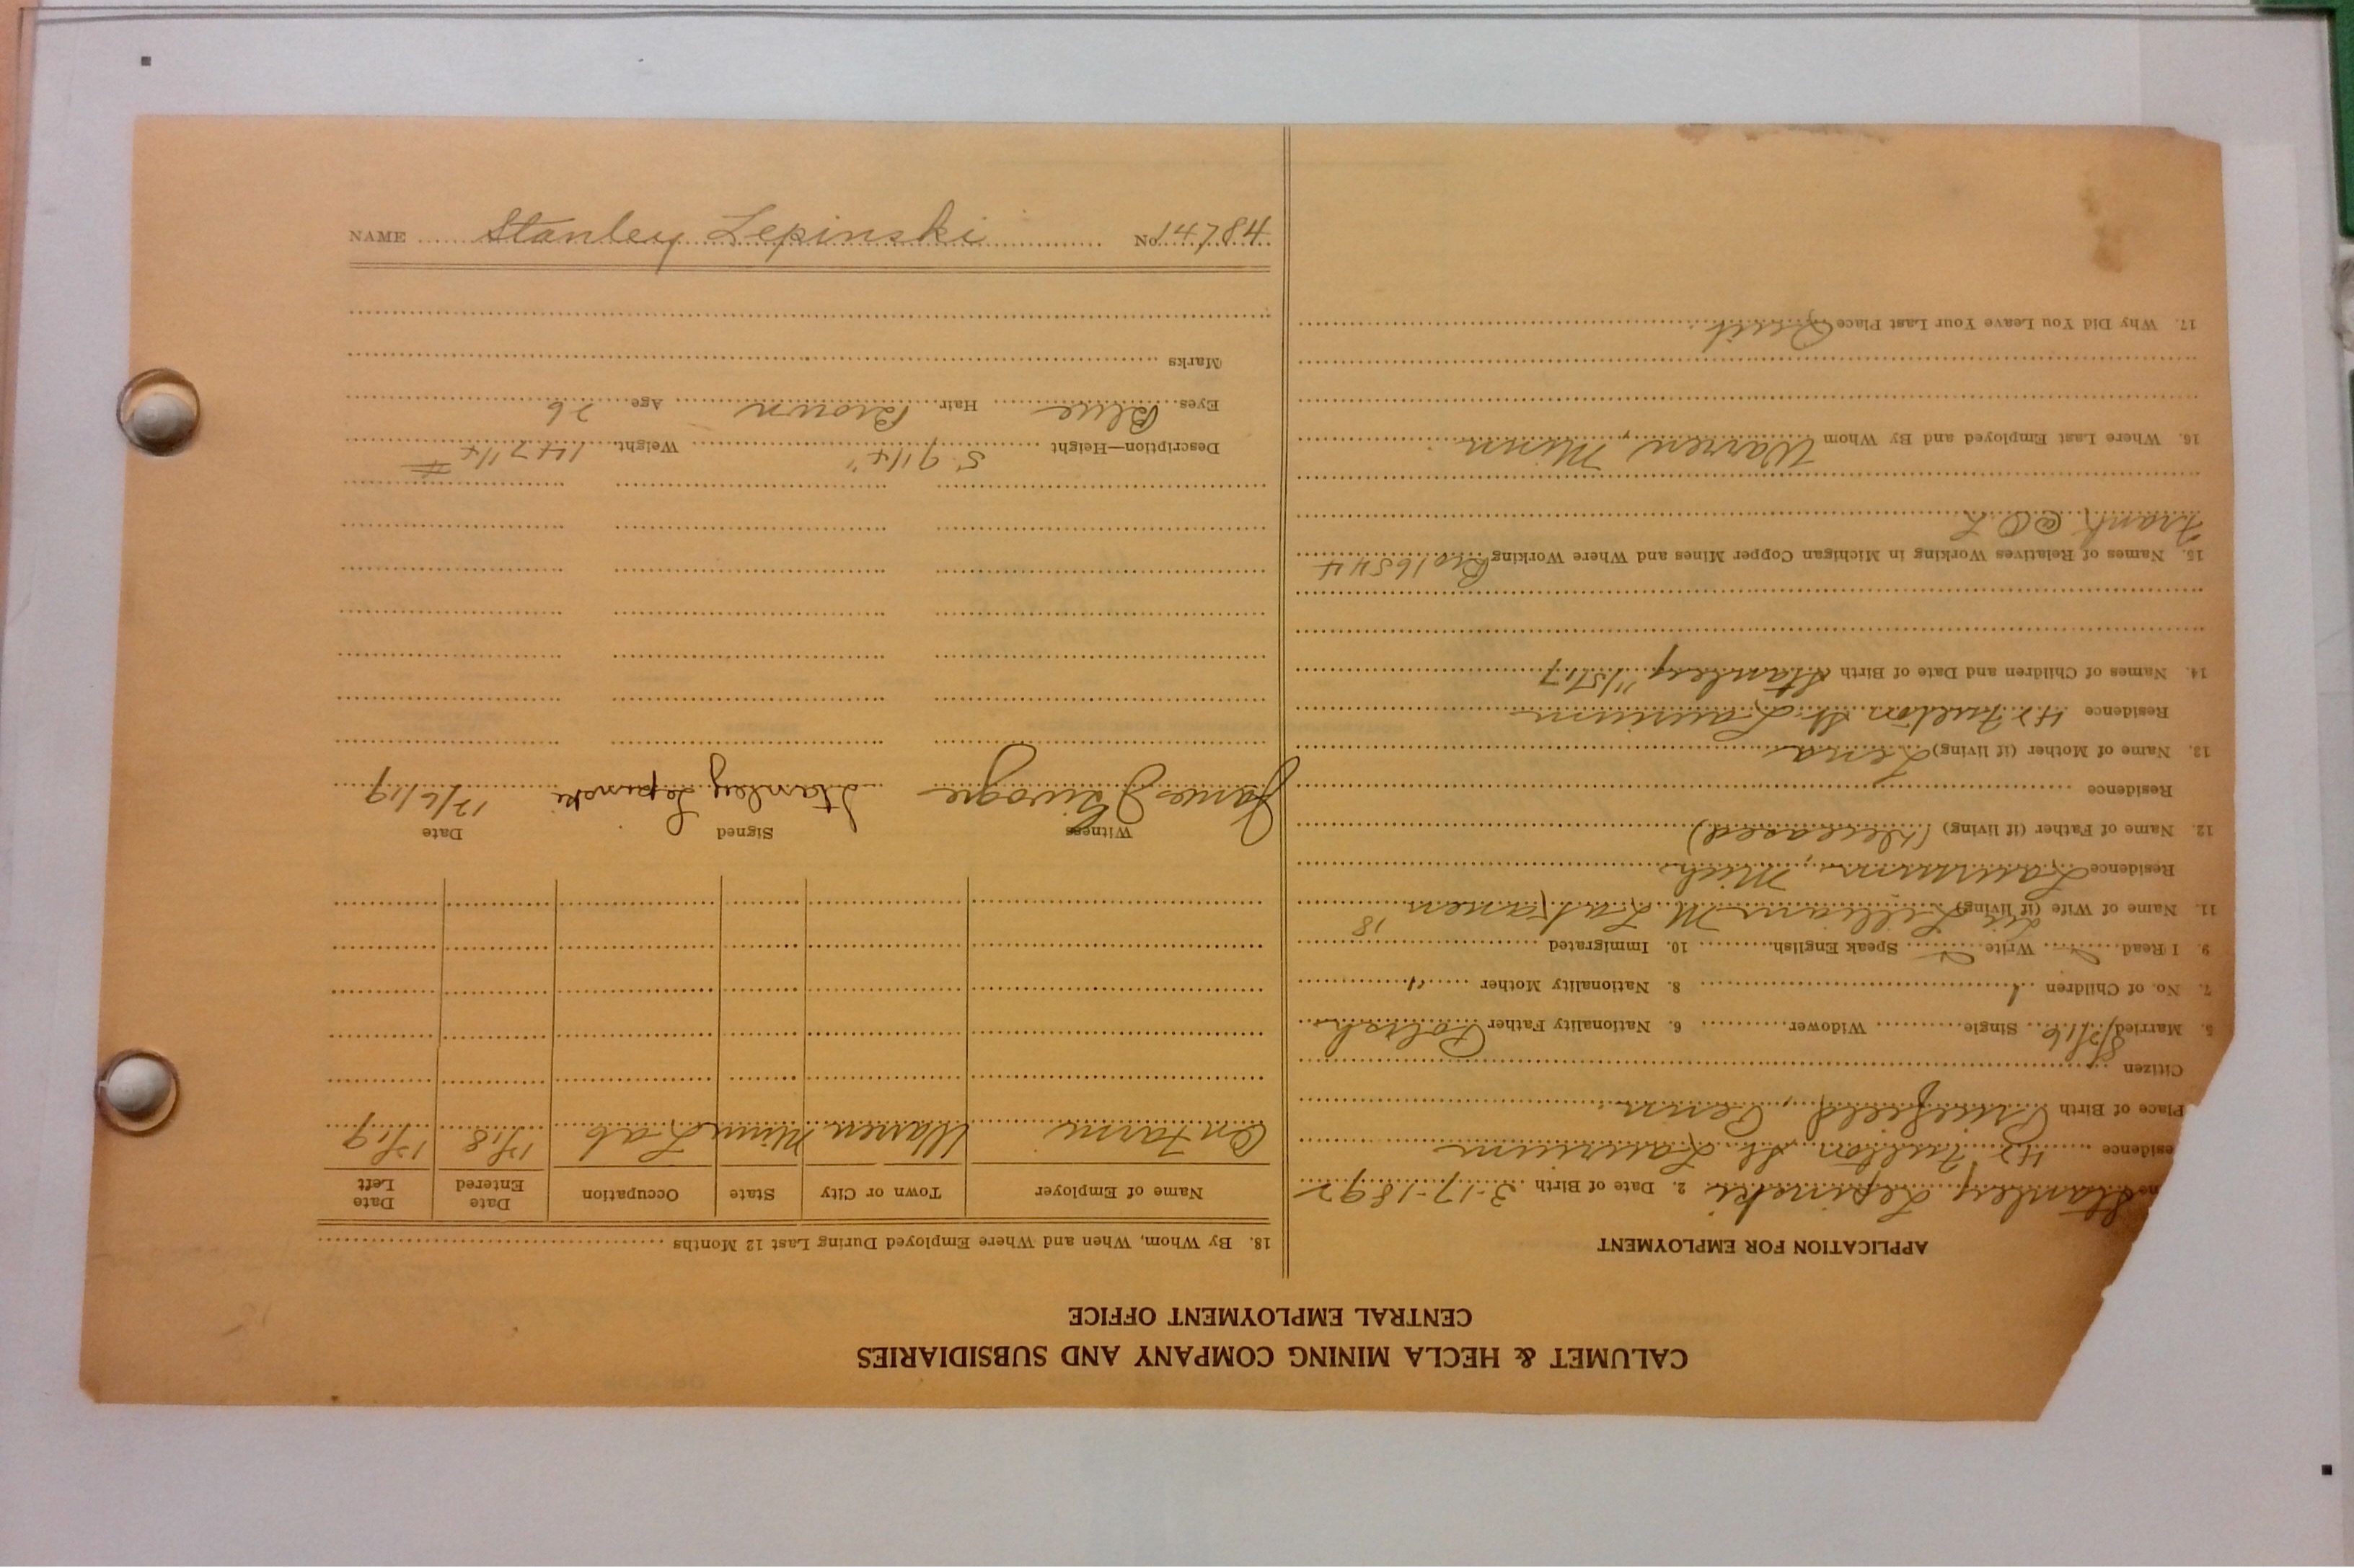 CALUMET & HECLA MINING COMPANY AND SUBSIDIARIES
CENTRAL EMPLOYMENT OFFICE
APPLICATION FOR EMPLOYMENT
me Stanley Lepinski 2. Date of Birth 3-17-1892
esidence 42 Fulton St. Laurium
Place of Birth Penn
Citizen
5. Married 8/2/16 Single Widower 6. Nationality Father Polish
7. No. of Children 1 8. Nationality Mother "
9. I Read Write Speak English 10. Immigrated
11. Name of Wife (if living) Lillian M 18
Residence Laurium, Mich.
12. Name of Father (if living) (deceased)
Residence
13. Name of Mother (if living) Lena
Residence 42 Fulton St. Laurium
14. Names of Children and Date of Birth Stanley 11/5/17
15. Names of Relatives Working in Michigan Copper Mines and Where Working Bro 16544
Frank @ O L
16. Where Last Employed and By Whom Warren, Minn
17. Why Did You Leave Your Last Place Quit
18. By Whom, When and Where Employed During Last 12 Months
Name of Employer Town or City State Occupation Date Entered Date Left
On Farm Warren Minn Lab 12/18 12/19
Witness Signed Date
James Stanley Lepinski 12/6/19
Description—Height 5' 9 1/4" Weight 147 1/4 #
Eyes Blue Hair Brown Age 26
Marks
NAME Stanley Lepinski No. 14784